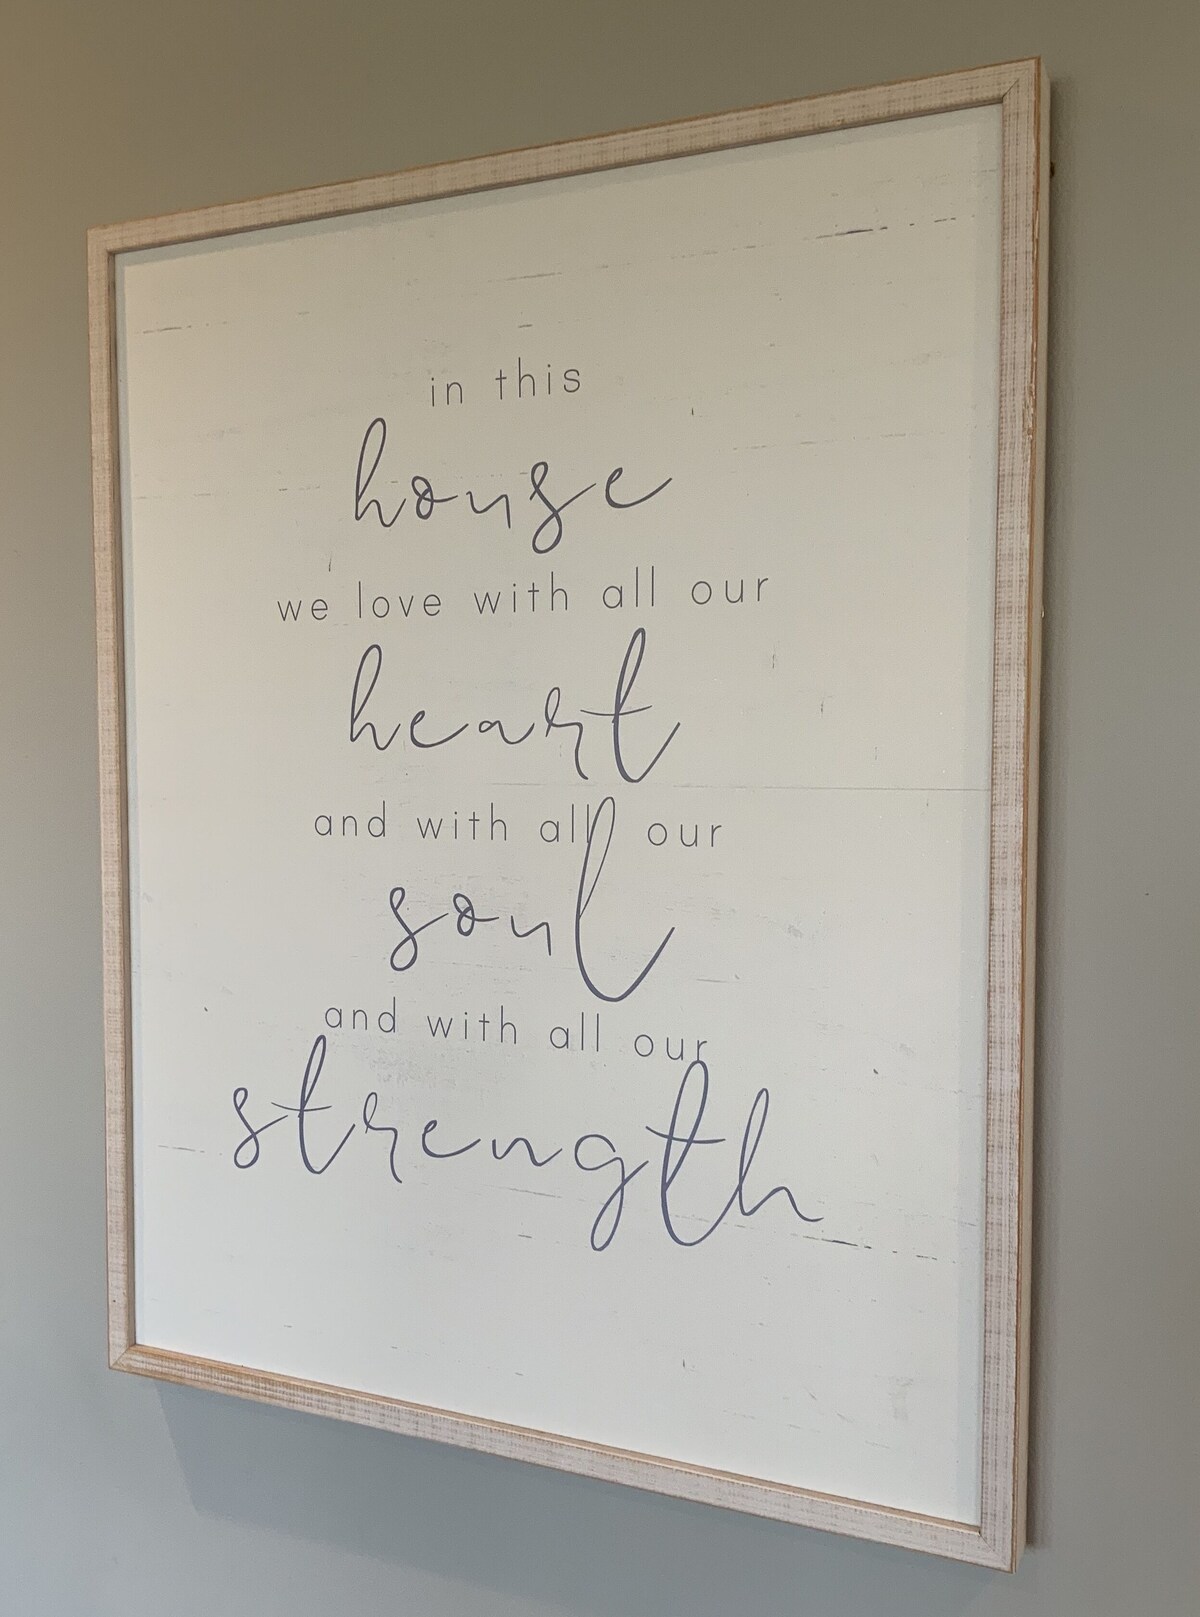 in this
house
we love with all our
heart
and with all our
soul
and with all our
strength